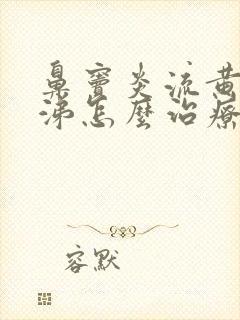 鼻竇炎流黃
涕怎麼治療
容默